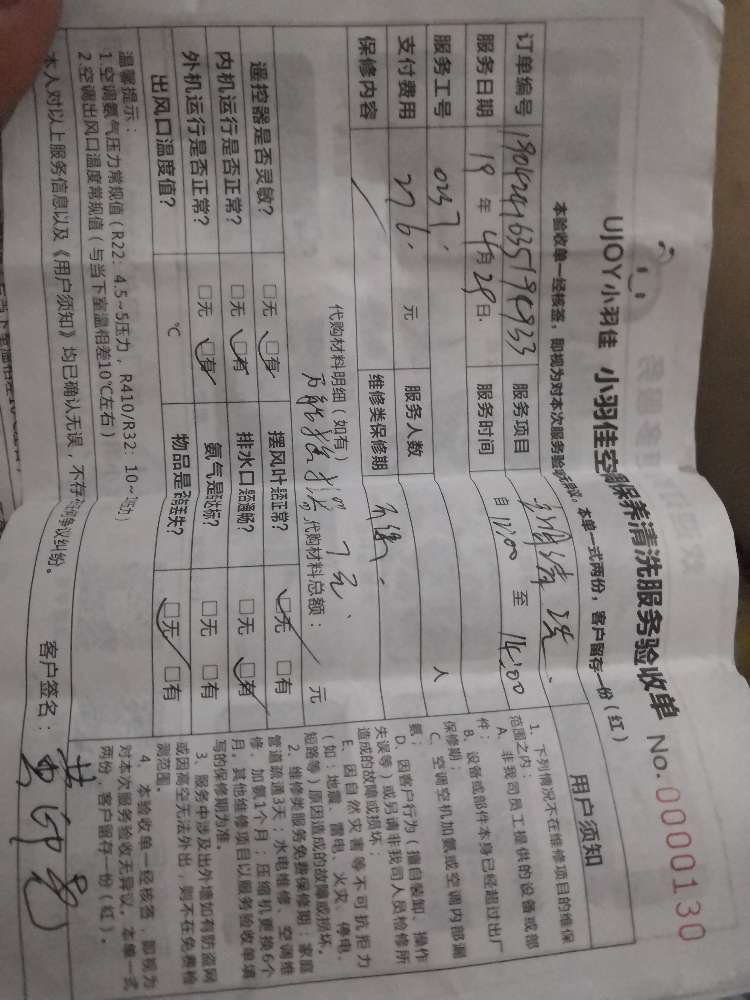 UJOY小羽佳 小羽佳空调保养清洗服务验收单 No.0000130
本验收单一经核签，即视为对本次服务验收无异议。本单一式两份，客户留存一份（红）
订单编号 服务项目
服务日期 19年4月29日 服务时间 自12:00至14:00
服务工号 0237 服务人数 人
支付费用 276 元 维修类保修期
保修内容
代购材料明细（如有）
代购材料总额： 元
遥控器是否灵敏？ □无 □有 摆风叶是否正常？ □无 □有
内机运行是否正常？ □无 □有 排水口是否通畅？ □无 □有
外机运行是否正常？ □无 □有 氨气是否达标？ □无 □有
出风口温度值？ ℃ 物品是否丢失？ □无 □有
温馨提示：
1.空调氨气压力常规值（R22：4.5~5压力，R410/R32：10~
2.空调出风口温度常规值（与当下室温相差10℃左右）
本人对以上服务信息以及《用户须知》均已确认无误，不存在任何争议纠纷。 客户签名：
用户须知
1、下列情况不在维修项目的维保
范围之内：
A、非我司员工提供的设备或部
件；
B、设备或部件本身已经超过出厂
保修期；
C、空调空机加氨或空调内部漏
氨；
D、因客户行为（擅自装卸、操作
失误等）或另请非我司人员检修所
造成的故障或损坏；
E、因自然灾害等不可抗拒力
（如：地震、雷电、火灾、停电、
短路等）原因造成的故障或损坏。
2、维修类服务免费保修期：家庭
管道疏通3天；水电维修、空调维
修、加氨1个月；压缩机更换6个
月，其他维修项目以服务验收单填
写的保修期为准。
3、服务中涉及出外墙如有防盗网
或因高空无法外出，则不在免费检
测范围。
4、本验收单一经核签，即视为
对本次服务验收无异议。本单一式
两份，客户留存一份（红）。